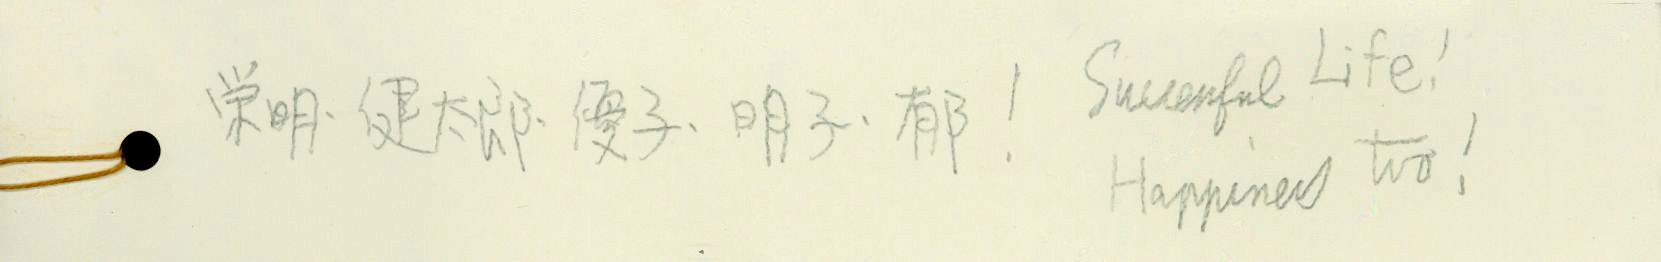 栄明、健太郎、優子、明子、郁!
Successful Life!
Happiness two!